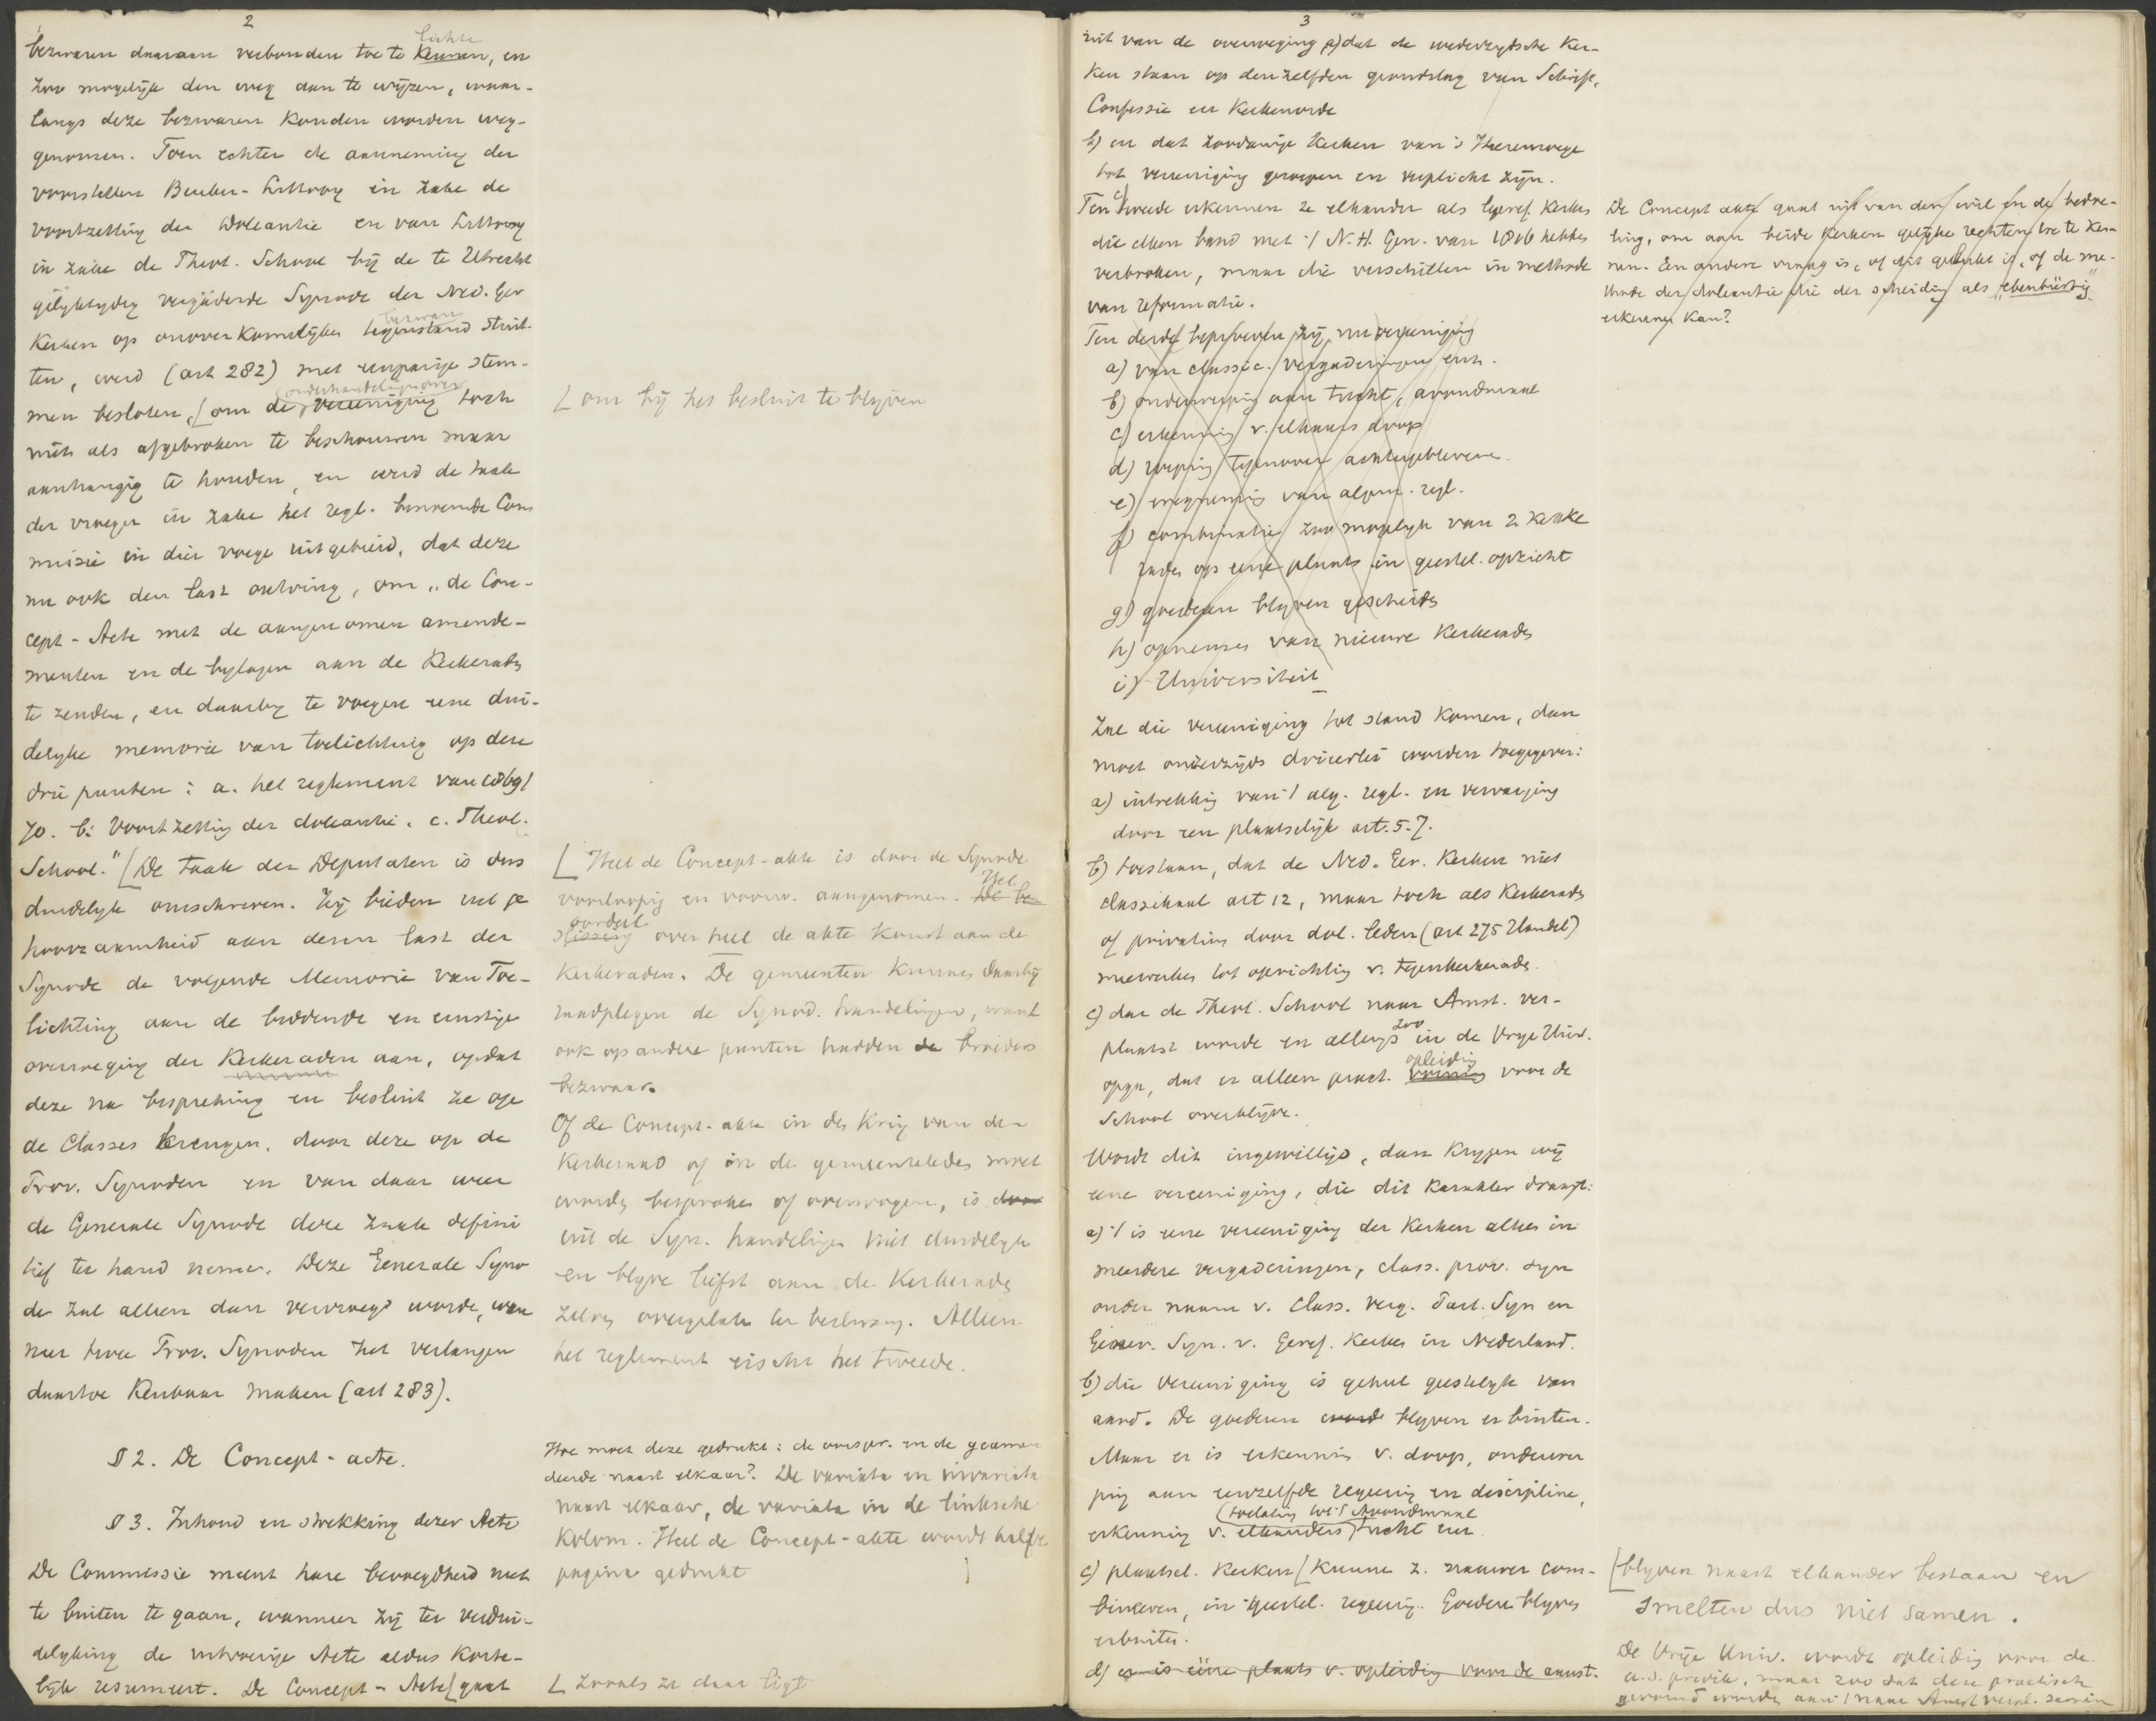 2
bezwaren daaraan verbonden toe te lichten kennen, en
zoo mogelijk den weg aan te wijzen, waar-
langs deze bezwaren konden worden weg-
genomen. Toen echter de aanneming der
voorstellen Beuker-Littooy in zake de
voortzetting der Doleantie en van Littooy
in zake de Theol. School bij de te Utrecht
gelijktijdig vergaderde Synode der Ned. Ger
Kerken op onoverkomelijken bezwaren tegenstand stuit-
ten, werd (art 282) met eenparige stem-
men besloten, [om de onderhandelingen over vereeniging toch
niet als afgebroken te beschouwen maar
aanhangig te houden, en werd de taak
der vroeger in zake het regl. benoemde Com
missie in dier voege uitgebreid, dat deze
nu ook den last ontving, om „de Con-
cept-Acte met de aangenomen amende-
menten en de bylagen aan de Kerkeraden
te zenden, en daarby te voegen eene dui-
delyke memorie van toelichting op deze
drie punten: a. het reglement van 1869/
70. b. Voortzetting der doleantie. c. Theol.
School." [De taak der Deputaten is dus
duidelyk omschreven. Zij bieden uit ge
hoorzaamheid aan dezen last der
Synode de volgende Memorie van Toe-
lichting aan de biddende en ernstige
overweging der Kerkeraden aan, opdat
deze na bespreking en besluit ze op
de Classes brengen, door deze op de
Prov. Synoden en van daar weer
de Generale Synode deze zaak defini
tief ter hand neme. Deze Generale Syno
de zal alleen dan vervroegd worden, wan
neer twee Prov. Synoden het verlangen
daartoe kenbaar maken (art 283).
§ 2. De Concept-acte.
§ 3. Inhoud en strekking dezer Acte
De Commissie meent hare bevoegdheid niet
te buiten te gaan, wanneer zij ter verdui-
delyking de ontworpen Acte aldus korte-
lijk resumeert. De Concept-Acte [gaat
[ om bij het besluit te blyven
[ Heel de Concept-akte is door de Synode
voorloopig en voorw. aangenomen. Het De be-
oordeel slissing over heel de akte komt aan de
Kerkeraden. De gemeenten kunnen daarbij
raadplegen de Synod. handelingen, want
ook op andere punten hadden de broeders
bezwaar.
Of de Concept-akte in den kring van den
Kerkeraad of in de gemeenteleden moet
worden besproken of overwogen, is door
uit de Syn. handelingen niet duidelyk
en blyve liefst aan de Kerkeraden
zelven overgelaten ter beslissing. Alleen
het reglement eischt het tweede.
Hoe moet deze gedrukt: de oorspr. en de geamen
deerde naast elkaar? De variata en invariata
naast elkaar, de variata in de linksche
Kolom. Heel de Concept-akte wordt halve
pagina gedrukt ]
[ zooals ze daar ligt
3
uit van de overweging a) dat de wederzydsche Ker-
ken staan op denzelfden grondslag van Schrift,
Confessie en Kerkenorde
b) en dat zoodanige Kerken van 's Heerenwege
tot vereeniging geroepen en verplicht zijn.
Ten tweede erkennen ze elkander als Geref. Kerken
die elken band met 't N. H. Gen. van 1816 hebben
verbroken, maar die verschillen in methode
van reformatie.
Ten derde beproeven zij nu vereeniging
a) van classic. vergaderingen enz.
b) onderwerping aan tucht, avondmaal
c) erkennig v. elkaars doop
d) roeping tegenover achtergeblevene.
e) wegneming van algem. regl.
f) combinatie zoo mogelyk van 2 Kerke
raden op eene plaats in geestel. opzicht
g) goederen blyven gescheiden
h) opnemen van nieuwe Kerkeraden
i) Universiteit
Zal die vereeniging tot stand komen, dan
moet onzerzijds drieerlei worden toegegeven:
a) intrekking van 't alg. regl. en vervanging
door een plaatselijk art. 5-7.
b) toestaan, dat de Ned. Ger. Kerken niet
classikaal art 12, maar toch als Kerkeraden
of privatim door dol. leden (art 275 Handel)
meewerken tot oprichting v. tegenkerkeraden.
c) dat de Theol. School naar Amst. ver-
plaatst worde en allengs zoo in de Vrye Univ.
opga, dat er alleen pract. opleiding vorming voor de
School overblijve.
Wordt dit ingewilligd, dan krygen wij
eene vereeniging, die dit karakter draagt:
a) 't is eene vereeniging der Kerken alleen in
meerdere vergaderingen, class. prov. syn
onder naam v. Class. Verg. Part. Syn en
Gener. Syn. v. Geref. Kerken in Nederland.
b) die vereeniging is geheel geestelyk van
aard. De goederen worde blyven er buiten.
Maar er is erkennis v. doop, onderwer
ping aan eenzelfde regeering en discipline,
(toelating tot 't Avondmaal
erkennig v. elkanders) tucht enz
c) plaatsel. Kerken [kunne z. nauwer com-
bineeren, in geestel. regeerig. Goederen blyven
erbuiten.
d) er is eene plaats v. opleidig voor de aanst.
De Concept akte gaat uit van den wil en de bedoe-
ling, om aan beide Kerken gelijke rechten toe te ken-
nen. Een andere vraag is, of dit gelukt is, of de me-
thode der doleantie die der scheiding als „ebenbürtig"
erkennen kan?
[blyven naast elkander bestaan en
smelten dus niet samen.
De Vrije Univ. wordt opleidig voor de
a.s. predik., maar zoo dat deze practisch
gevormd worden aan 't naar Amst verpl. semin